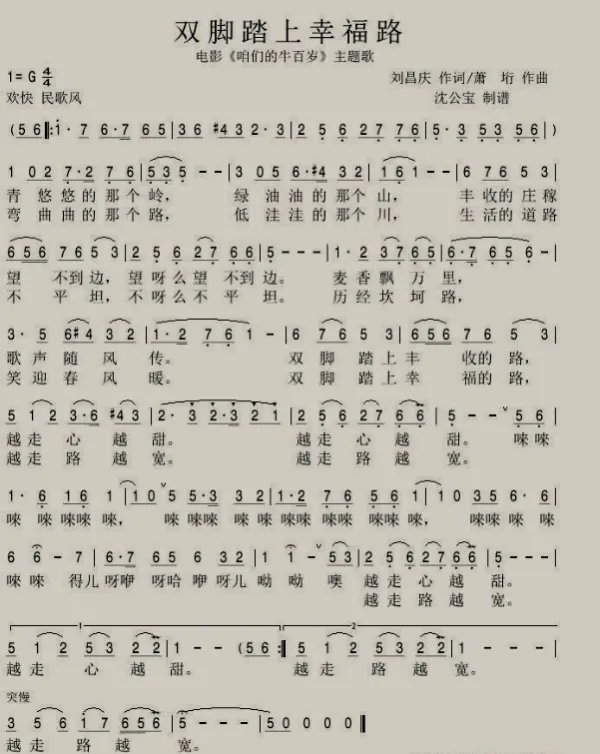 双脚踏上幸福路
电影《咱们的牛百岁》主题歌
1=G 4/4
刘昌庆 作词/萧 珩 作曲
欢快 民歌风
沈公宝 制谱
(5 6 ‖: 1· 7 6·7 6 5 | 3 6 #4 3 2 3·2 3 | 2 5 6 2 7 7 6 | 5·3 5 3 5 6 | )
1 0 2 7·2 7 6 | 5 3 5 - - | 3 0 5 6·#4 3 2 | 1 6 1 - - | 6 7 6 5 3 |
青 悠 悠 的 那 个 岭， 绿 油 油 的 那 个 山， 丰 收 的 庄 稼
弯 曲 曲 的 那 个 路， 低 洼 洼 的 那 个 川， 生 活 的 道 路
6 5 6 7 6 5 3 | 2 5 6 2 7 6 6 | 5 - - - | 1· 2 3 7 6 5 | 6·7 6 5 6 - |
望 不到边，望 呀 么 望 不 到 边。 麦 香 飘 万 里，
不 平 坦，不 呀 么 不 平 坦。 历 经 坎 坷 路，
3· 5 6#4 3 2 | 1·2 7 6 1 - | 6 7 6 5 3 | 6 5 6 7 6 5 3 |
歌 声 随 风 传。 双 脚 踏 上 丰 收 的 路，
笑 迎 春 风 暖。 双 脚 踏 上 幸 福 的 路，
5 1 2 3·6 #4 3 | 2· 3 2·3 2 1 | 2 5 6 2 7 6 6 | 5 - - ˅ 5 6 |
越 走 心 越 甜。 越 走 心 越 甜。 唻 唻
越 走 路 越 宽。 越 走 路 越 宽。
1· 6 1 6 1 | 1 0 ˅ 5 5·3 3 2 | 1·2 7 6 5 6 1 | 1 0 3 5 6·6 |
唻 唻 唻唻 唻， 唻 唻唻 唻唻 唻唻 唻唻 唻唻， 唻 唻唻 唻唻
6 6 - 7 | 6·7 6 5 3 5 3 2 | 1 1 - ˅ 5 3 | 2 5 6 2 7 6 6 |
唻 唻 得儿 呀咿 呀哈 咿呀儿 呦 呦 噢 越 走 心 越 甜。
越 走 路 越 宽。
1 2
5 1 2 5 3 2 2 | 1 - - (5 6 :‖ 5 1 2 5 3 2 2 | 1 - - - |
越 走 心 越 甜。 越 走 路 越 宽。
突慢
3 5 6 1 7 6 5 6 | 5 - - - | 5 0 0 0 0 ‖
越 走 路 越 宽。